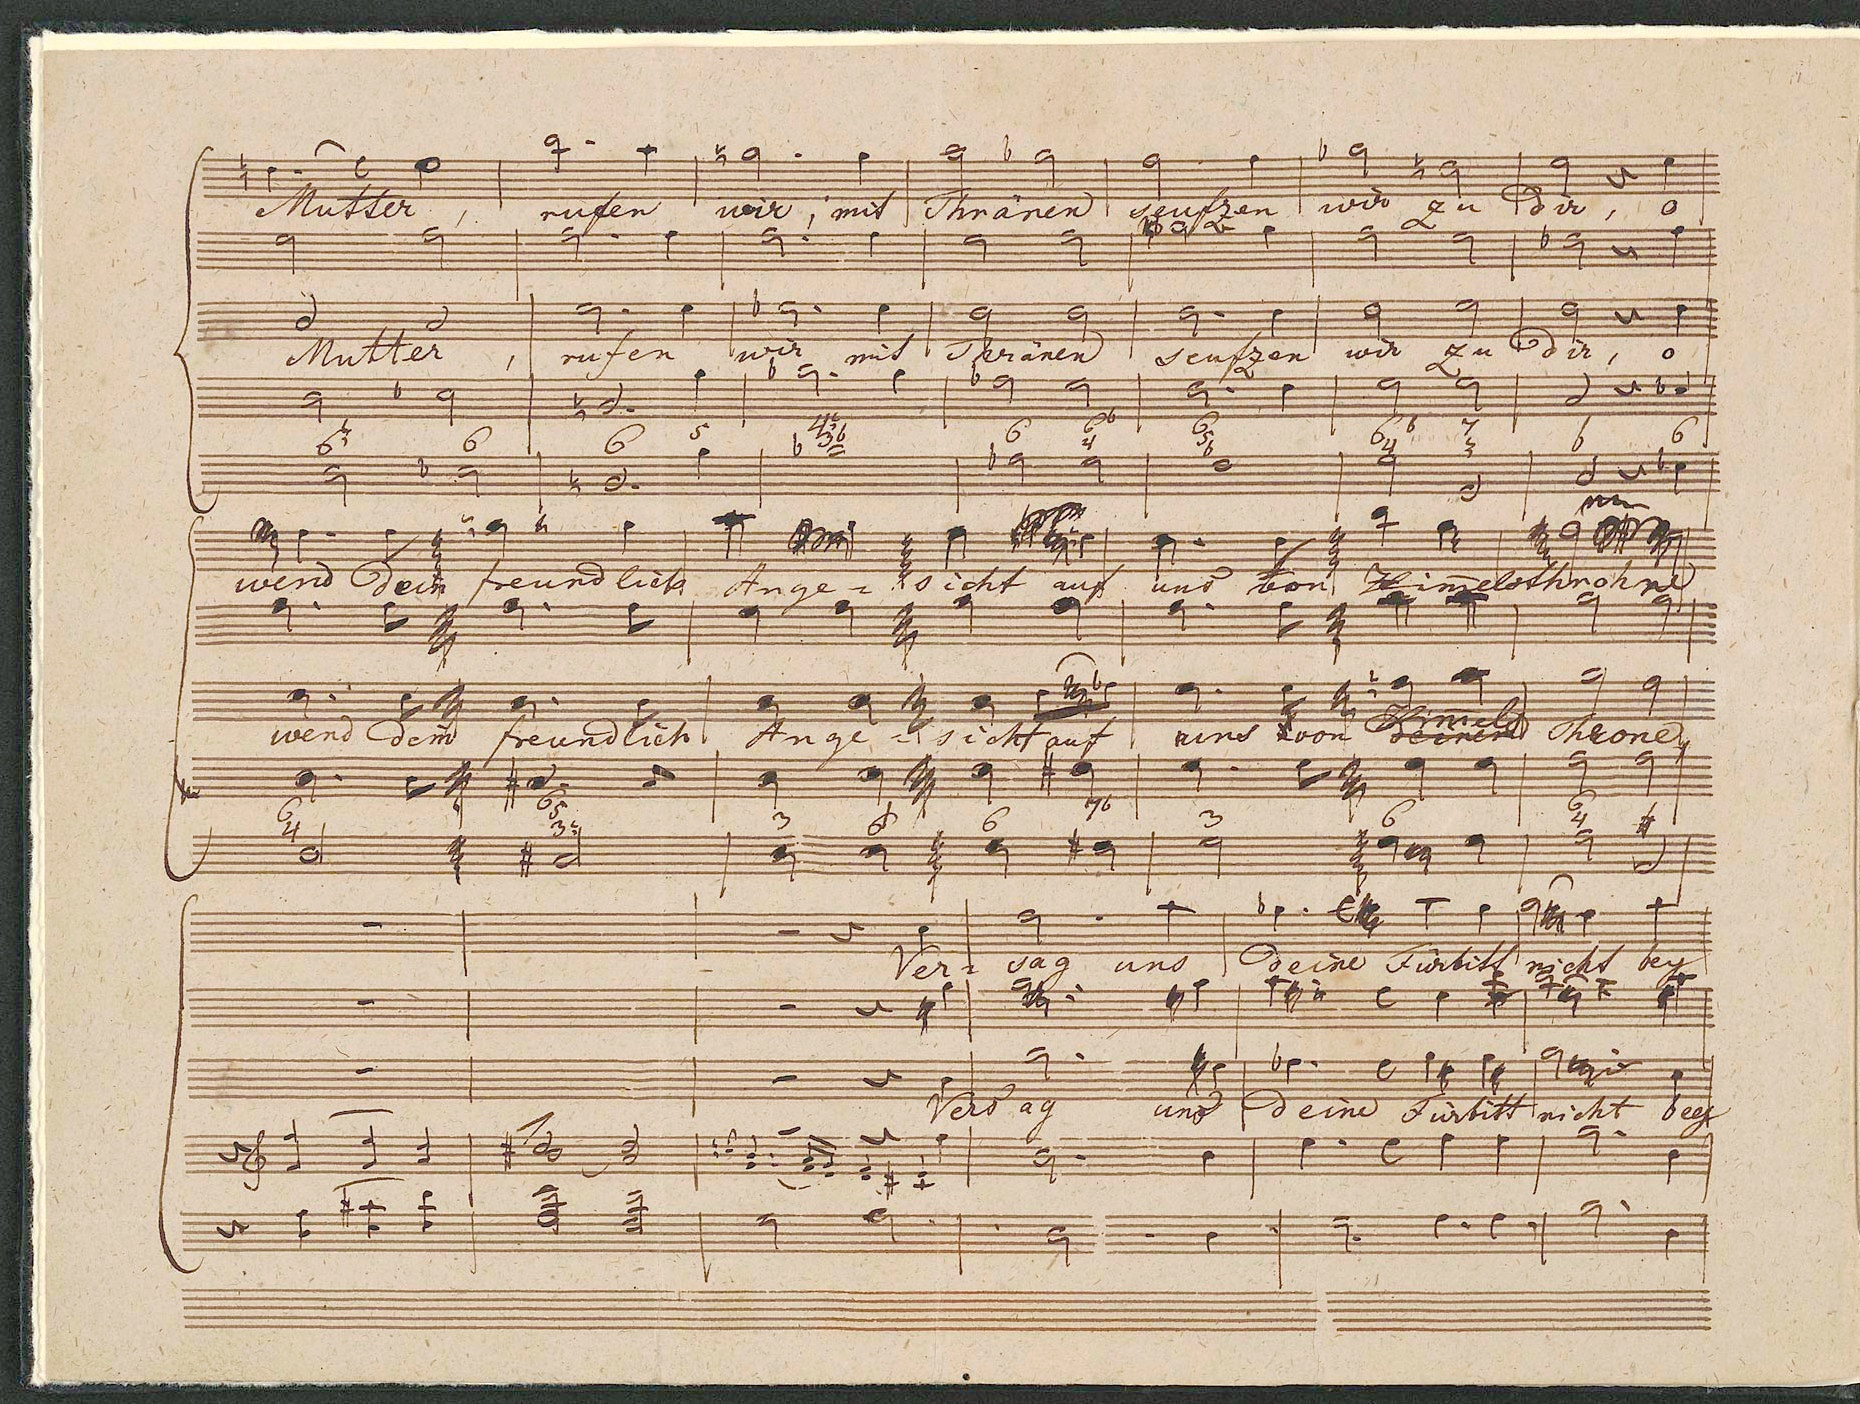 Mutter, rufen wir, mit Thränen seufzen wir zu dir, o
Mutter, rufen wir mit Thränen seufzen wir zu dir, o
6 6 6 5 6 6 7 6
wend dein freundlich Ange= sicht auf uns von Himelsthrohne
wend dein freundlich Ange= sicht auf uns von Himels Throne
6 4 6 5 3 3 6 6 7 3 6 6 4
Ver= sag uns deine Fürbitt nicht bey
Versag uns deine Fürbitt nicht bey